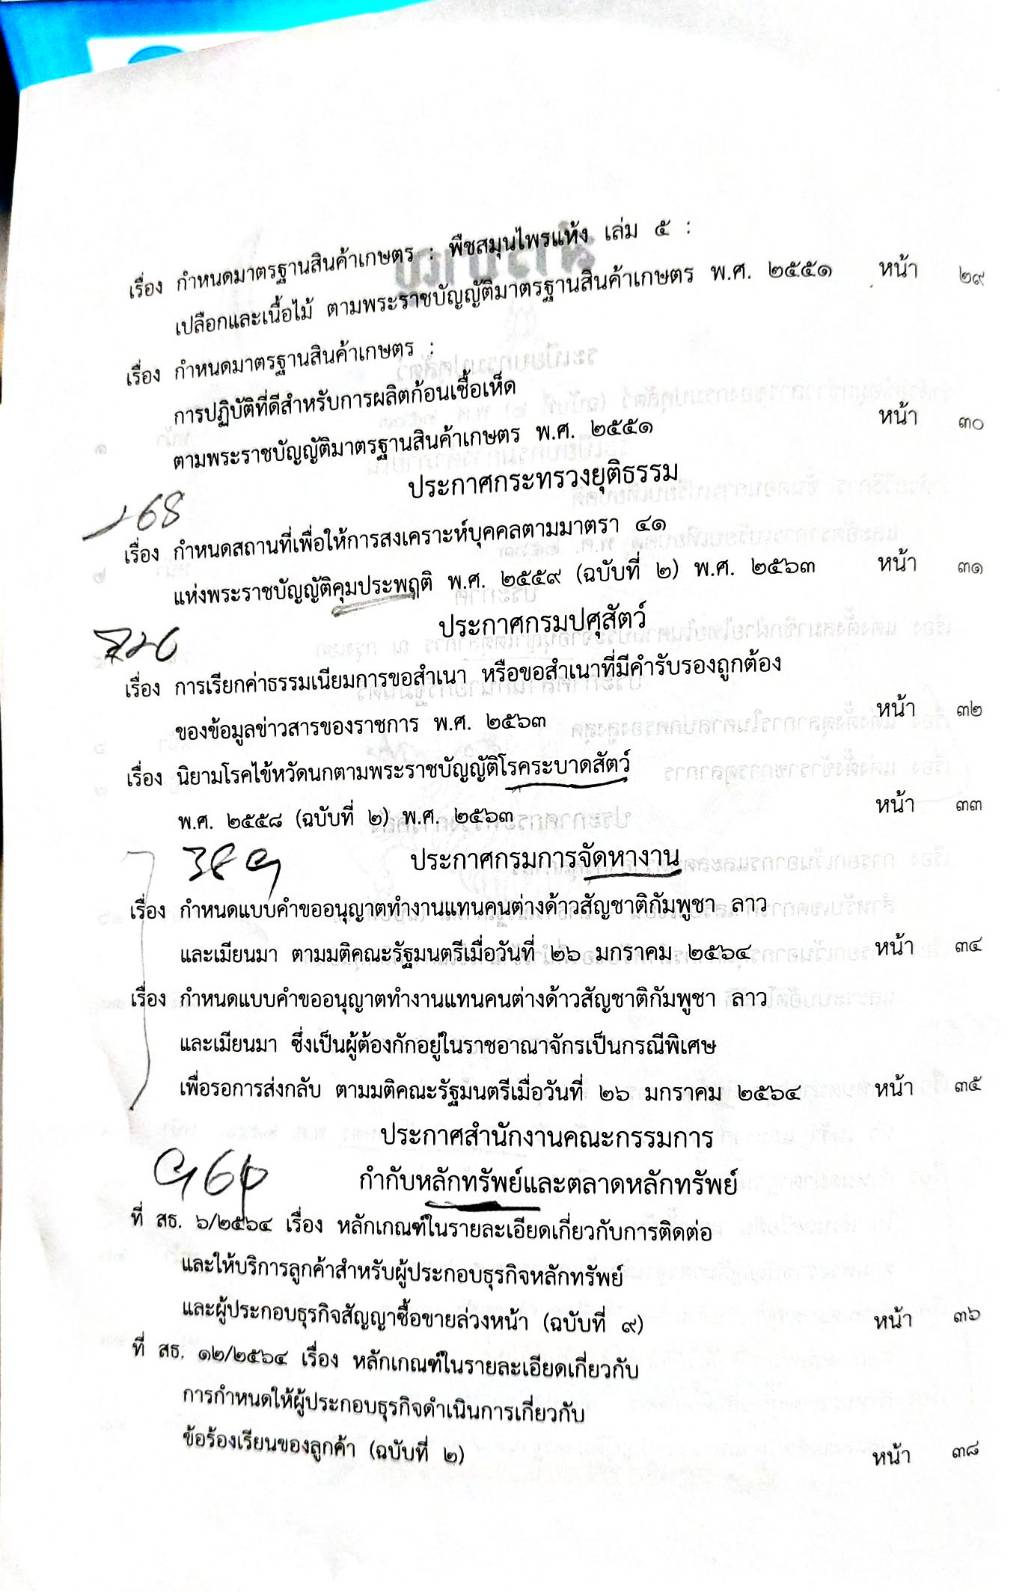 เรื่อง กำหนดมาตรฐานสินค้าเกษตร : พืชสมุนไพรแห้ง เล่ม ๕ :
เปลือกและเนื้อไม้ ตามพระราชบัญญัติมาตรฐานสินค้าเกษตร พ.ศ. ๒๕๕๑ หน้า ๒๙
เรื่อง กำหนดมาตรฐานสินค้าเกษตร :
การปฏิบัติที่ดีสำหรับการผลิตก้อนเชื้อเห็ด
ตามพระราชบัญญัติมาตรฐานสินค้าเกษตร พ.ศ. ๒๕๕๑ หน้า ๓๐
ประกาศกระทรวงยุติธรรม
168
เรื่อง กำหนดสถานที่เพื่อให้การสงเคราะห์บุคคลตามมาตรา ๔๑
แห่งพระราชบัญญัติคุมประพฤติ พ.ศ. ๒๕๕๙ (ฉบับที่ ๒) พ.ศ. ๒๕๖๓ หน้า ๓๑
ประกาศกรมปศุสัตว์
เรื่อง การเรียกค่าธรรมเนียมการขอสำเนา หรือขอสำเนาที่มีคำรับรองถูกต้อง
ของข้อมูลข่าวสารของราชการ พ.ศ. ๒๕๖๓ หน้า ๓๒
เรื่อง นิยามโรคไข้หวัดนกตามพระราชบัญญัติโรคระบาดสัตว์
พ.ศ. ๒๕๕๘ (ฉบับที่ ๒) พ.ศ. ๒๕๖๓ หน้า ๓๓
ประกาศกรมการจัดหางาน
เรื่อง กำหนดแบบคำขออนุญาตทำงานแทนคนต่างด้าวสัญชาติกัมพูชา ลาว
และเมียนมา ตามมติคณะรัฐมนตรีเมื่อวันที่ ๒๖ มกราคม ๒๕๖๔ หน้า ๓๔
เรื่อง กำหนดแบบคำขออนุญาตทำงานแทนคนต่างด้าวสัญชาติกัมพูชา ลาว
และเมียนมา ซึ่งเป็นผู้ต้องกักอยู่ในราชอาณาจักรเป็นกรณีพิเศษ
เพื่อรอการส่งกลับ ตามมติคณะรัฐมนตรีเมื่อวันที่ ๒๖ มกราคม ๒๕๖๔ หน้า ๓๕
ประกาศสำนักงานคณะกรรมการ
กำกับหลักทรัพย์และตลาดหลักทรัพย์
ที่ สธ. ๖/๒๕๖๔ เรื่อง หลักเกณฑ์ในรายละเอียดเกี่ยวกับการติดต่อ
และให้บริการลูกค้าสำหรับผู้ประกอบธุรกิจหลักทรัพย์
และผู้ประกอบธุรกิจสัญญาซื้อขายล่วงหน้า (ฉบับที่ ๙) หน้า ๓๖
ที่ สธ. ๑๒/๒๕๖๔ เรื่อง หลักเกณฑ์ในรายละเอียดเกี่ยวกับ
การกำหนดให้ผู้ประกอบธุรกิจดำเนินการเกี่ยวกับ
ข้อร้องเรียนของลูกค้า (ฉบับที่ ๒) หน้า ๓๘